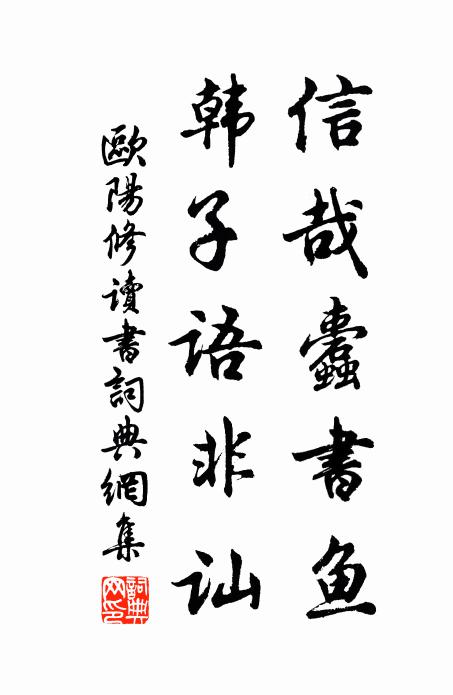 信哉蠹書鱼
韩子語非訕
歐陽修讀書詞典網集
詞典网印